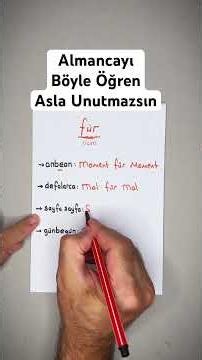 Almancayı
Böyle Öğren
Asla Unutmazsın
für
→ anbean: Moment für Moment
→ defalarca: Mal für Mal
→ sayfa sayfa: S
→ günbegün: